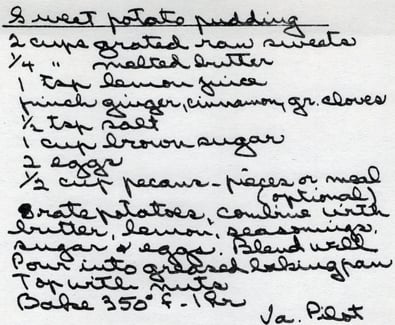 Sweet potato pudding
2 cups grated raw sweets
1/4 " melted butter
1 tsp lemon juice
pinch ginger, cinnamon, gr. cloves
1/2 tsp salt
1 cup brown sugar
2 eggs
1/2 cup pecans - pieces or meal
(optional)
Grate potatoes, combine with
butter, lemon, seasonings,
sugar & eggs. Blend well
Pour into greased baking pan
Top with nuts
Bake 350° F - 1 hr
Va. Pilot